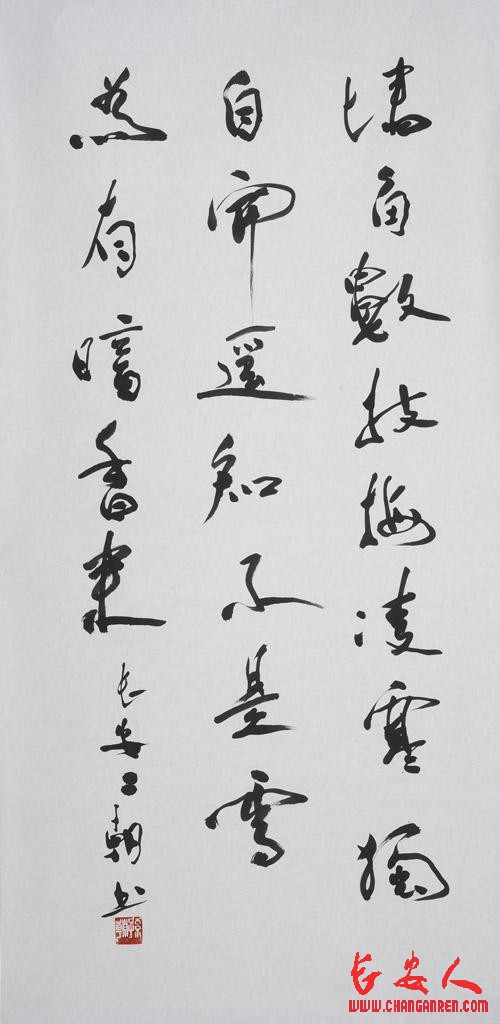 墙角數枝梅凌寒獨
自開遥知不是雪
為有暗香來
长安 朝书
长安人
WWW.CHANGANREN.COM